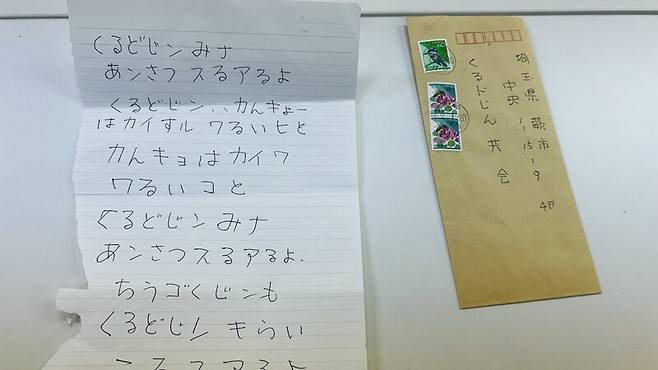 くるどじン みナ
あンさつ スるアるよ
くるどじン、、カんキょー
はカイすル ワるい ヒと
カんキョはカイワ
ワるい コと
くるどじン みナ
あンさつ スる アるよ.
ちうゴくじンも
くるどじン きらい
ころス アるよ
埼玉県 蕨市
中央 1-15-9
4F
くるドじん 共会